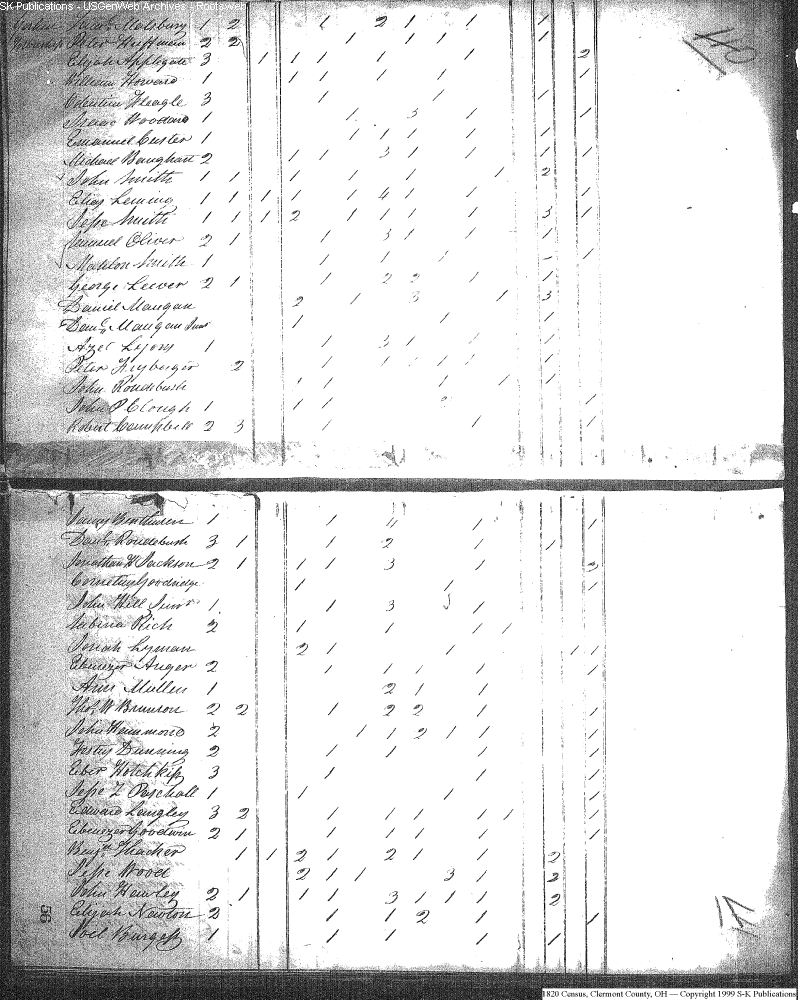 SK-Publications - USGenWeb Archives - RootsWeb
40
Township Peter Huffman 2 2 1 1 1 1 1
Elijah Applegate 3 1 1 1 1 1 2
William Howard 1 1 1 1 1 1
Valentine Fleagle 3 1 1 1
Isaac Woodard 1 1 3 1 1 1
Emanuel Custer 1 1 1 1 1 1
Michael Baughart 2 1 1 3 1 1 1 1
John Smith 1 1 1 1 1 1 1 2
Elias Leming 1 1 1 1 1 4 1 1 1 1
Jesse Smith 1 1 1 2 1 1 1 1 3 1
Samuel Oliver 2 1 1 3 1 1 1
Smith 1 1 1 1 1 1
George Leever 2 1 1 2 2 1 1
Daniel Maugan 2 1 3 1 3
Danl. Maugan Junr 1 1 1
Azel Lyons 1 1 3 1 1 1
Peter Frybarger 2 1 1 1 1 1 1
John Roudebush 1 1 1 1 1
John P Clough 1 1 1 2 1
Robert Campbell 2 3 1 1 1
1 1 4 1 1
Danl. Roudebush 3 1 1 2 1 1
Jonathan W Jackson 2 1 1 1 3 1 3
Cornelius Goodridge 1 1 1
John Hill Junr 1 1 3 1
Sabina Rich 2 1 1 1 1
Jonah Lyman 2 1 1 1 1 1
Ebenezer Anger 2 1 1 1 1 1
Mullen 1 2 1 1
Thos. W Brunson 2 2 1 2 2 1 1
John Hammond 2 1 1 2 1 1 1
Festus Dunning 2 1 1 1 1
Eber Hotchkiss 3 1 1 1
Jesse Z Paschall 1 1 1 1
Edward Langley 3 2 1 1 1 1 1 1
Ebenezer Goodwin 2 1 1 1 1 1 1
Benjn. Thacker 1 1 2 1 2 1 1 2
Jesse Wood 2 1 1 3 1 2
John Hawley 2 1 1 1 3 1 1 1 2
Elijah Newton 2 1 1 2 1 1
Joel Burgess 1 1 1 1 1
56
41
1820 Census, Clermont County, OH — Copyright 1999 S-K Publications